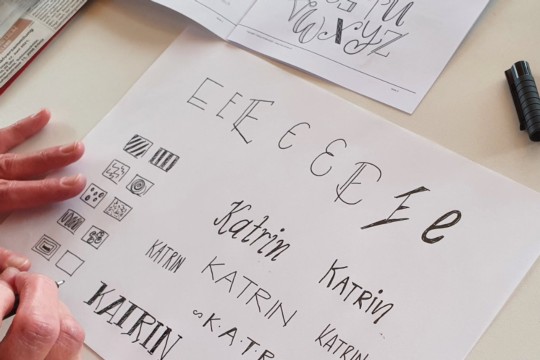 U
V W X Y Z
E E E E E E E e
Katrin
KATRIN KATRIN KATRin
KATRIN K·A·T·R KATRIN